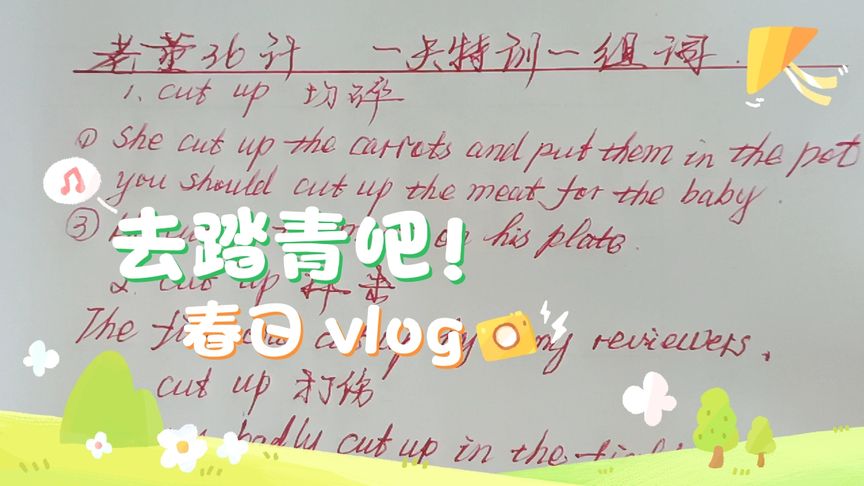 老董36计 一天特训一组词.
1. cut up 切碎
① She cut up the carrots and put them in the pot
you should cut up the meat for the baby.
③ on his plate.
去踏青吧!
2. cut up 抨击
春日 vlog
The reviewers.
cut up 打伤
badly cut up in the